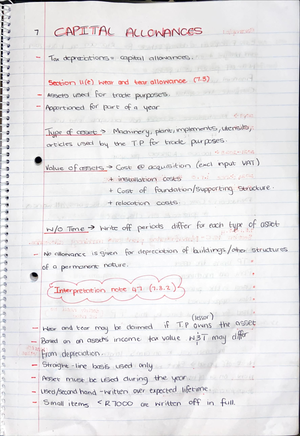 7 CAPITAL ALLOWANCES
- Tax depreciations = capital allowances.
Section 11(e) Wear and tear allowance (7.3)
- Assets used for trade purposes.
- Apportioned for part of a year
Type of asset → Machinery, plant, implements, utensils,
articles used by the T.P for trade purposes.
Value of assets → Cost @ acquisition (excl input VAT)
+ installation costs
+ Cost of foundation/supporting structure
+ relocation costs.
W/O Time → Write off periods differ for each type of asset
- No allowance is given for depreciation of buildings/other structures
of a permanent nature.
Interpretation note 47 (7.3.2)
- Wear and tear may be claimed if T.P owns the asset
- Based on an assets income tax value N.B.T may differ
from depreciation.
- Straight-line basis used only
- Asset must be used during the year.
- Used/second hand - written over expected lifetime.
- Small items < R7000 are written off in full.